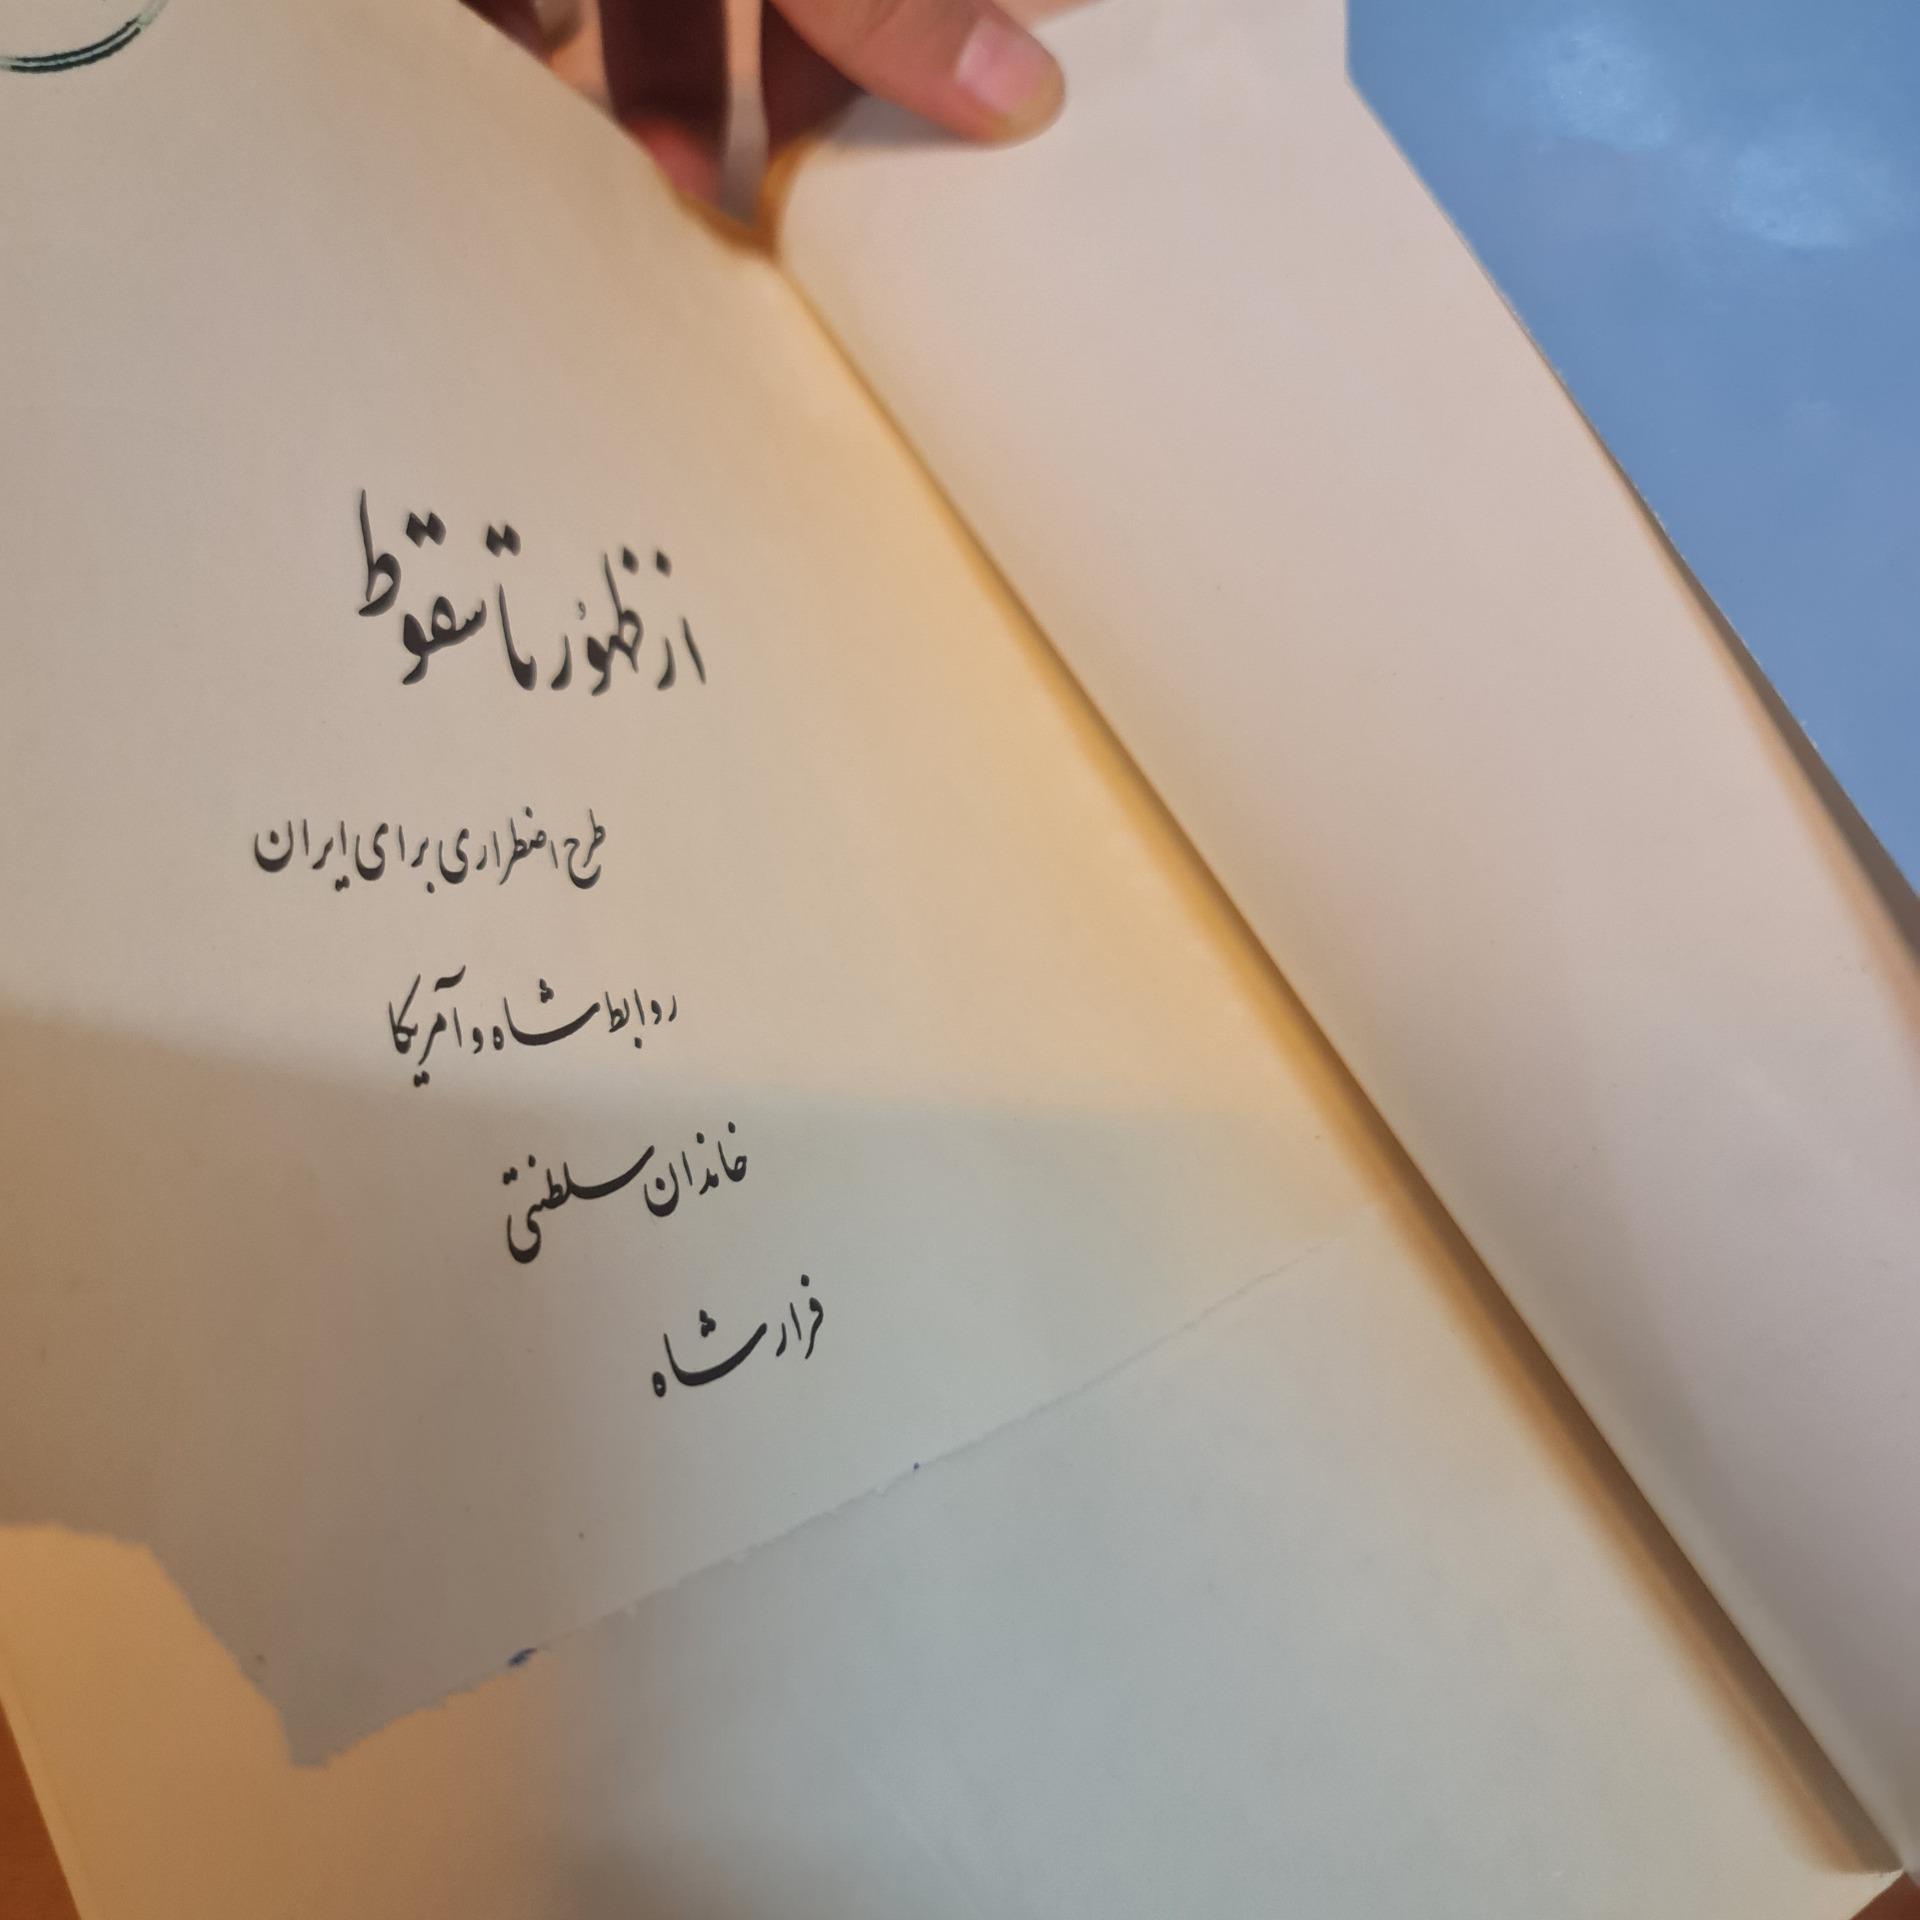 از ظهور تا سقوط
طرح اضطراری برای ایران
روابط شاه و آمریکا
خاندان سلطنتی
فرار شاه